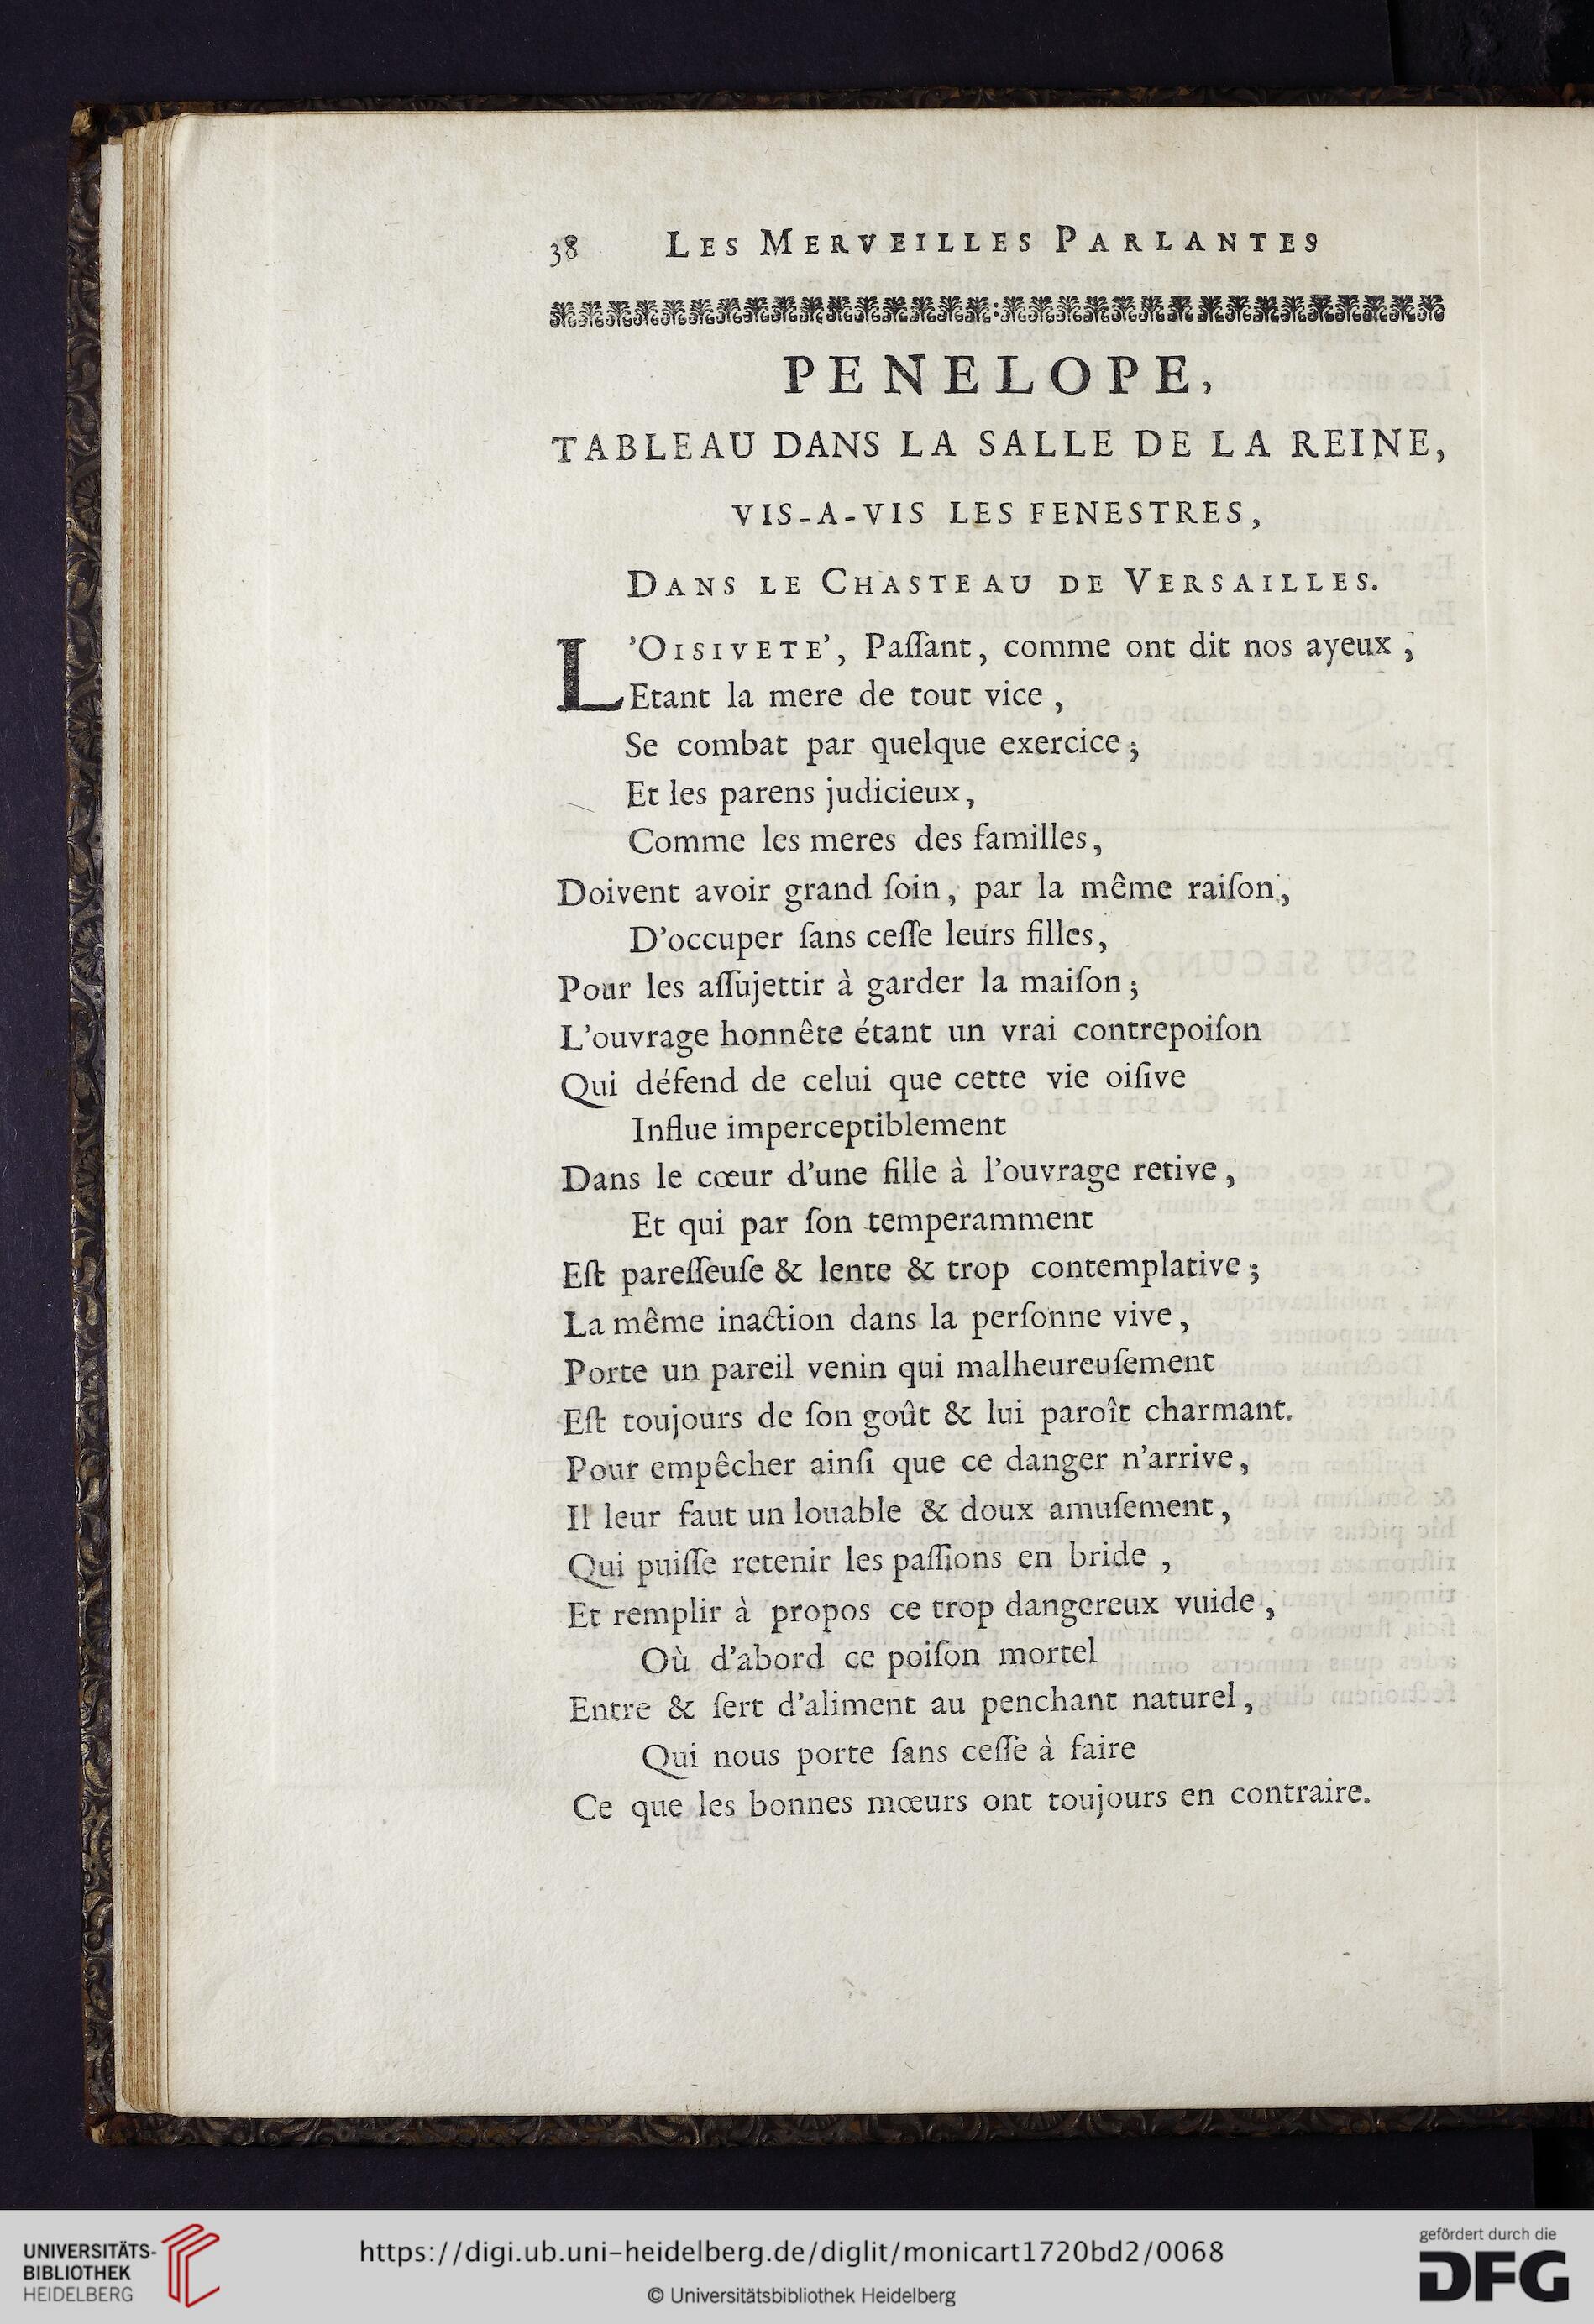 38 LES MERVEILLES PARLANTES
PENELOPE,
TABLEAU DANS LA SALLE DE LA REINE,
VIS-A-VIS LES FENESTRES,
DANS LE CHASTEAU DE VERSAILLES.
L'OISIVETE', Paſſant, comme ont dit nos ayeux,
Etant la mere de tout vice,
Se combat par quelque exercice;
Et les parens judicieux,
Comme les meres des familles,
Doivent avoir grand ſoin, par la même raiſon,
D'occuper ſans ceſſe leurs filles,
Pour les aſſujettir à garder la maiſon;
L'ouvrage honnête étant un vrai contrepoiſon
Qui défend de celui que cette vie oiſive
Influe imperceptiblement
Dans le cœur d'une fille à l'ouvrage retive,
Et qui par ſon temperamment
Eſt pareſſeuſe & lente & trop contemplative;
La même inaction dans la perſonne vive,
Porte un pareil venin qui malheureuſement
Eſt toujours de ſon goût & lui paroît charmant.
Pour empêcher ainſi que ce danger n'arrive,
Il leur faut un louable & doux amuſement,
Qui puiſſe retenir les paſſions en bride,
Et remplir à propos ce trop dangereux vuide,
Où d'abord ce poiſon mortel
Entre & ſert d'aliment au penchant naturel,
Qui nous porte ſans ceſſe à faire
Ce que les bonnes mœurs ont toujours en contraire.
UNIVERSITÄTS-
BIBLIOTHEK
HEIDELBERG
https://digi.ub.uni-heidelberg.de/diglit/monicart1720bd2/0068
© Universitätsbibliothek Heidelberg
gefördert durch die
DFG